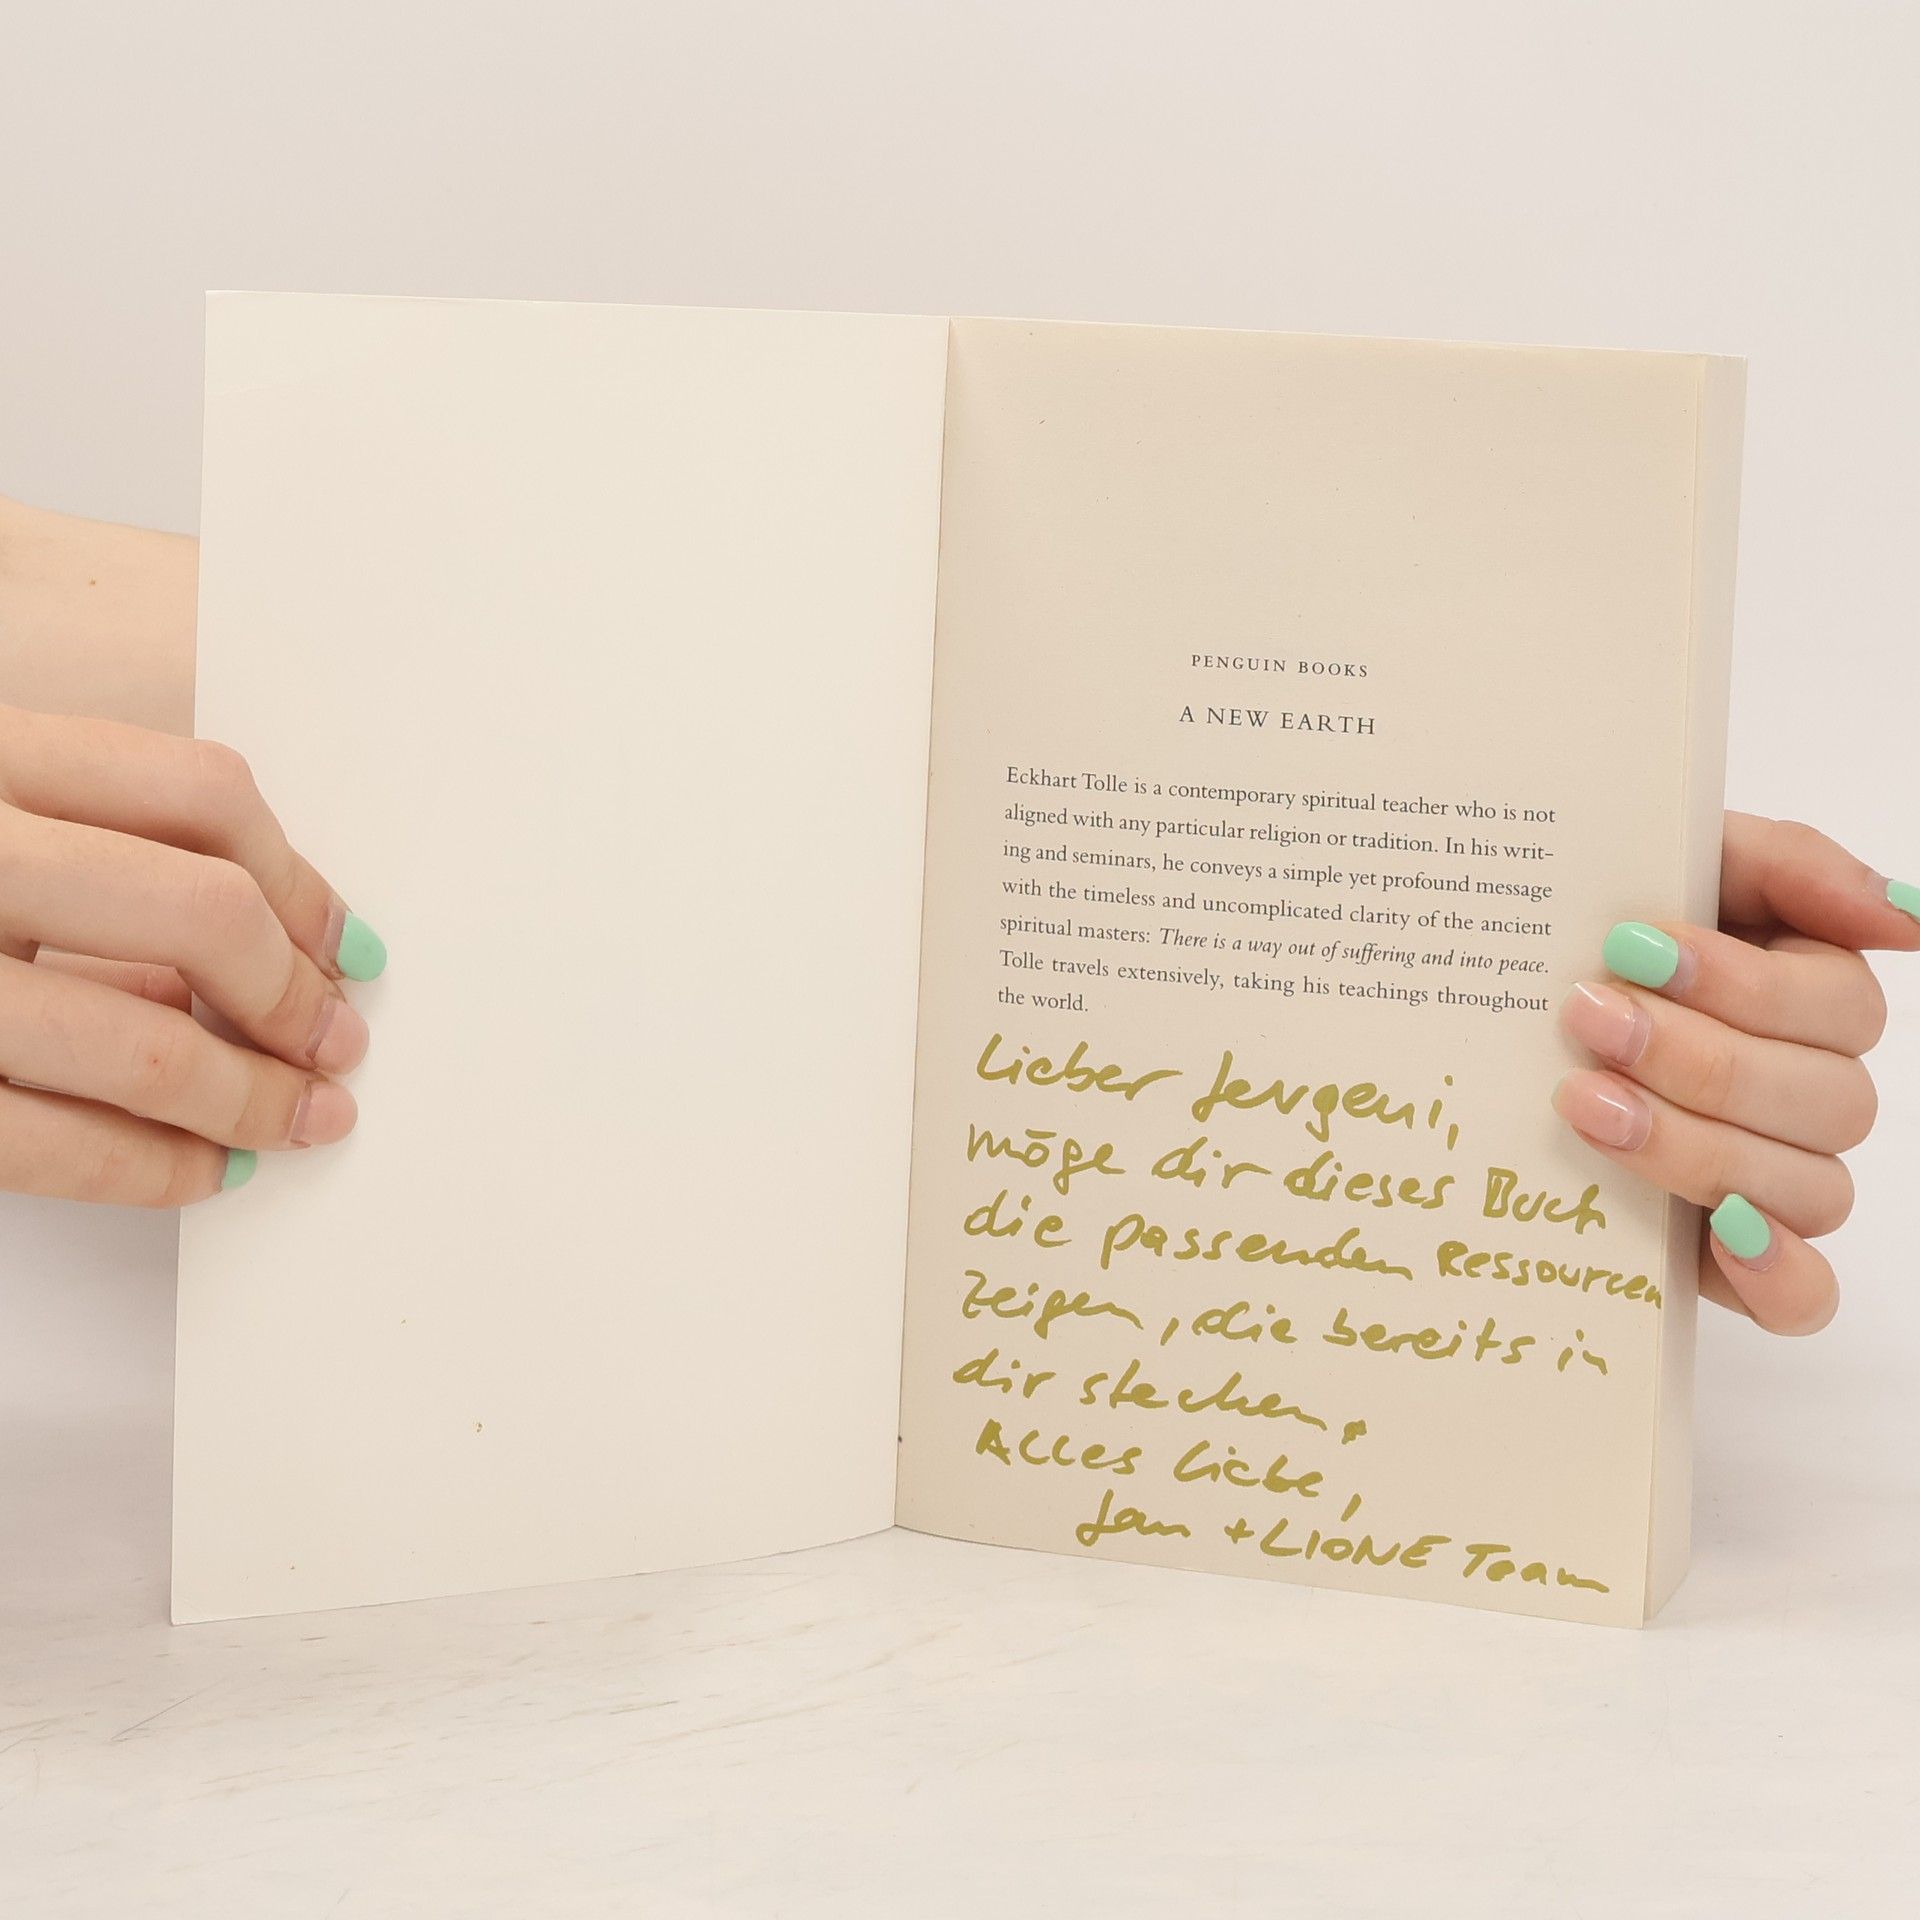 PENGUIN BOOKS
A NEW EARTH
Eckhart Tolle is a contemporary spiritual teacher who is not
aligned with any particular religion or tradition. In his writ-
ing and seminars, he conveys a simple yet profound message
with the timeless and uncomplicated clarity of the ancient
spiritual masters: There is a way out of suffering and into peace.
Tolle travels extensively, taking his teachings throughout
the world.
Lieber Jevgeni,
möge dir dieses Buch
die passenden Ressourcen
zeigen, die bereits in
dir stecken.
Alles Liebe,
Jan + LIONE Team